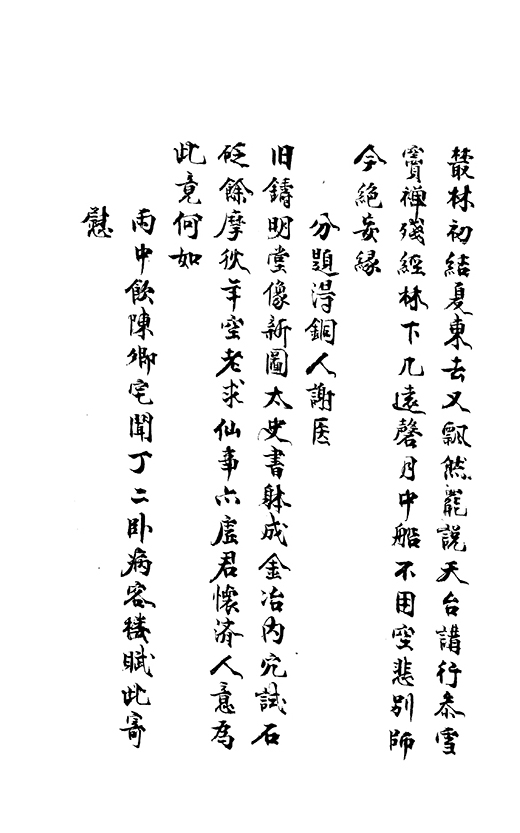 叢林初結夏東去又飄然罷説天台講行叅雪
竇禅殘經林下几遠磬月中船不用空悲别師
今絶妄縁
分題得銅人謝医
旧鑄明堂像新圖太史書躰成金冶内穴試石
砭餘摩狄年空老求仙事六虚君懷済人意為
此竟何如
雨中飲陳卿宅聞丁二卧病客楼賦此寄
慰